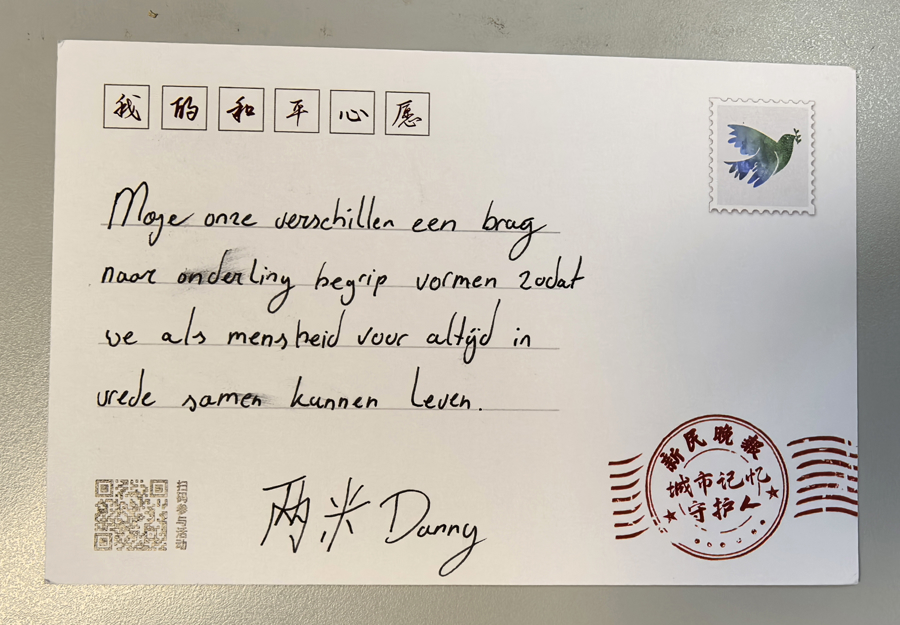 我的和平心愿
Moge onze verschillen een brug
naar onderling begrip vormen zodat
we als mensheid voor altijd in
vrede samen kunnen leven.
两米 Danny
扫码参与活动
新民晚报
城市记忆
守护人